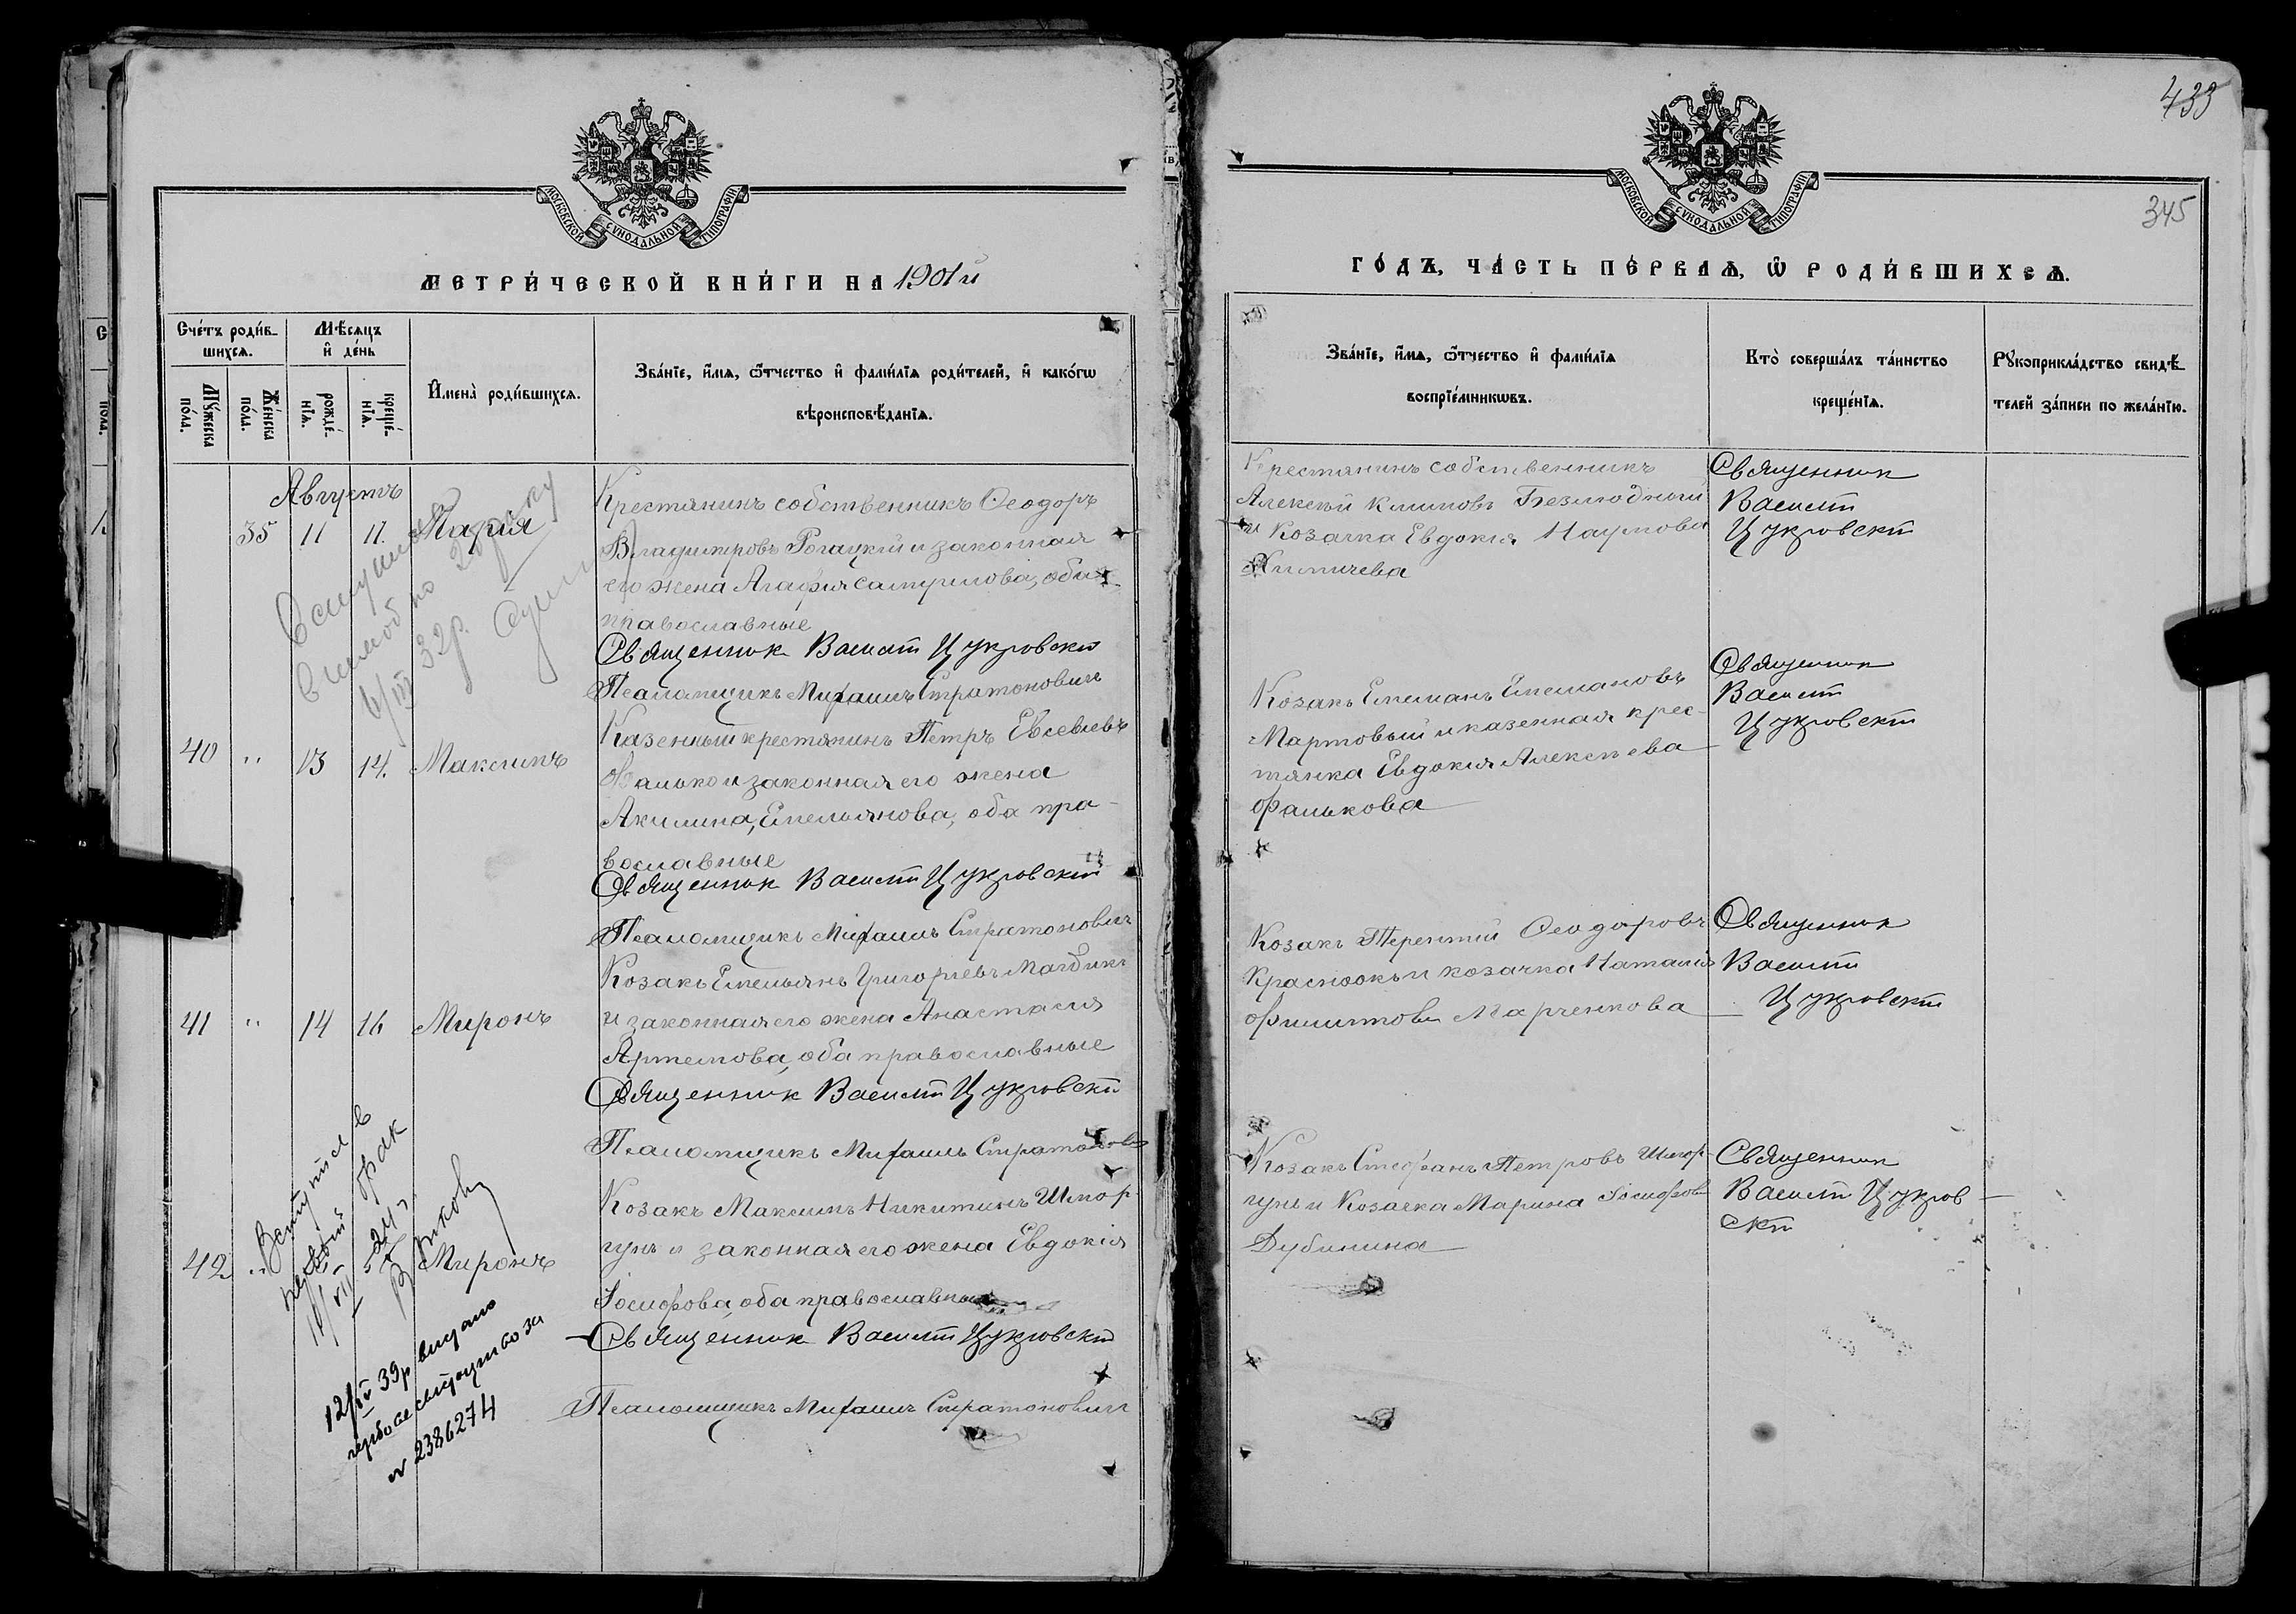 433
345
МОСКОВСКОЙ СѴНОДАЛЬНОЙ ТИПОГРАФІИ
МОСКОВСКОЙ СѴНОДАЛЬНОЙ ТИПОГРАФІИ
МЕТРИ́ЧЕСКОЙ КНИ́ГИ НА 1901й
ГО́ДЪ, ЧА́СТЬ ПЕ́РВАѦ, Ѡ҆ РОДИ́ВШИХСѦ.
Сче́тъ роди́в-
шихсѧ.
Му́жеска
по́ла.
Же́нска
по́ла.
Мѣ́сѧцъ
и҆ де́нь
рожде́-
нїѧ.
креще́-
нїѧ.
И҆мена̀ роди́вшихсѧ.
Зва́нїе, и҆́мѧ, ѻ҆́тчество и҆ фами́лїѧ роди́телей, и҆ како́гѡ
вѣроисповѣ́данїѧ.
Зва́нїе, и҆́мѧ, ѻ҆́тчество и҆ фами́лїѧ
воспрїе́мникѡвъ.
Кто̀ соверша́лъ та́инство
креще́нїѧ.
Рꙋкоприкла́дство свидѣ́-
телей за́писи по жела́нїю.
Августъ
35 11 11. Марія
Крестянинъ собственникъ Ѳеодоръ
Владиміровъ Рогацкій и законная
его жена Агафія Самуилова, оба
православные
Священник Василій Цукровскій
Псаломщикъ Михаилъ Стратоновичъ
Крестянинъ собственникъ
Алексѣй Климовъ Безлюдный
и Козачка Евдокія Наумова
Священник
Василій
Цукровскій
40 " 13 14. Максимъ
Казенный крестянинъ Петръ Евсевіевъ
Фалько и законная его жена
Акилина, Емельянова, оба пра-
вославные
Священник Василій Цукровскій
Псаломщикъ Михаилъ Стратоновичъ
Козакъ Емелианъ Емелиановъ
Мартовый и казенная крес-
тянка Евдокія Алексѣева
Фалькова
Священник
Василій
Цукровскій
41 " 14 16 Миронъ
Козакъ Емельянъ Григоріевъ
и законная его жена Анастасія
Артемова, оба православные
Священник Василій Цукровскій
Псаломщикъ Михаилъ Стратонович
Козакъ Терентій Ѳеодоровъ
Красноокъ и козачка Наталія
Филиппова Марченкова
Священник
Василій
Цукровскій
42 " Миронъ
Козакъ Максимъ Никитинъ Шмор-
гунъ и законная его жена Евдокія
Іосифова, оба православные
Священник Василій Цукровскій
Псаломщикъ Михаилъ Стратоновичъ
Козакъ Стефанъ Петровъ Шмор-
гунъ и Козачка Марина Іосифова
Дубинина
Священник
Василій Цукров-
скій
Вступился в
первый брак
12/IV 39р видано
№ 2386274